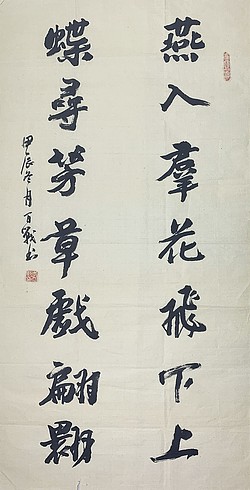 燕入群花飛下上
蝶尋芳草戲翩翾
甲辰冬月百戰書